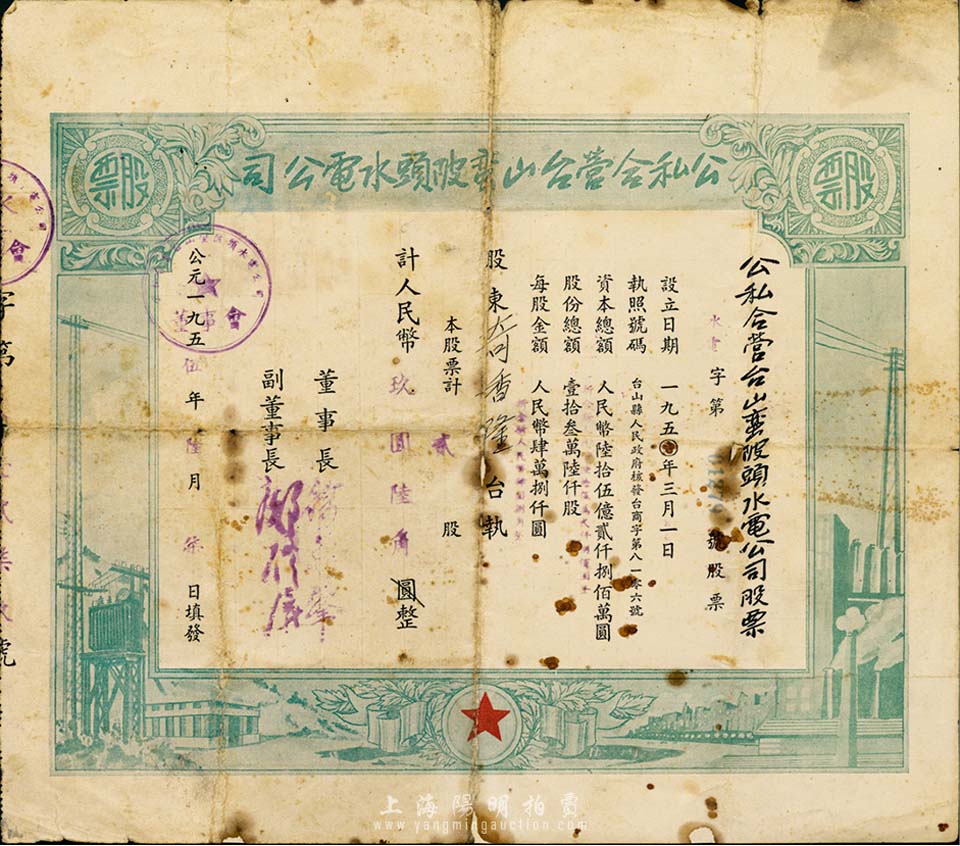 公私合營台山蛮陂頭水電公司
股票
股票
公私合營台山蛮陂頭水電公司股票
水電字第01279號股票
設立日期 一九五〇年三月一日
執照號碼 台山縣人民政府核發台商字第八一零六號
資本總額 人民幣陸拾伍億貳仟捌佰萬圓
股份總額 壹拾叁萬陸仟股
每股金額 人民幣肆萬捌仟圓
股東 香隆台執
本股票計 貳 股
計人民幣 玖圓陸角圓整
董事長
副董事長
公元一九五伍年陸月 日填發
董事會
會
字第
號
上海陽明拍賣
www.yangmingauction.com